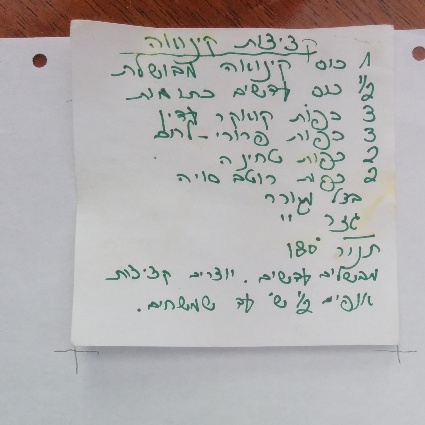 קציצות קינואה
1 כוס קינואה מבושלת
1/2 כוס עדשים כתומות
3 כפות קוואקר עדין
3 כפות פרורי-לחם
2 כפות טחינה
2 כפות רוטב סויה
בצל מגורר
גזר "
תנור 180°
מבשלים עדשים. יוצרים קציצות
אופים 1/2 ש' עד שמשחים.